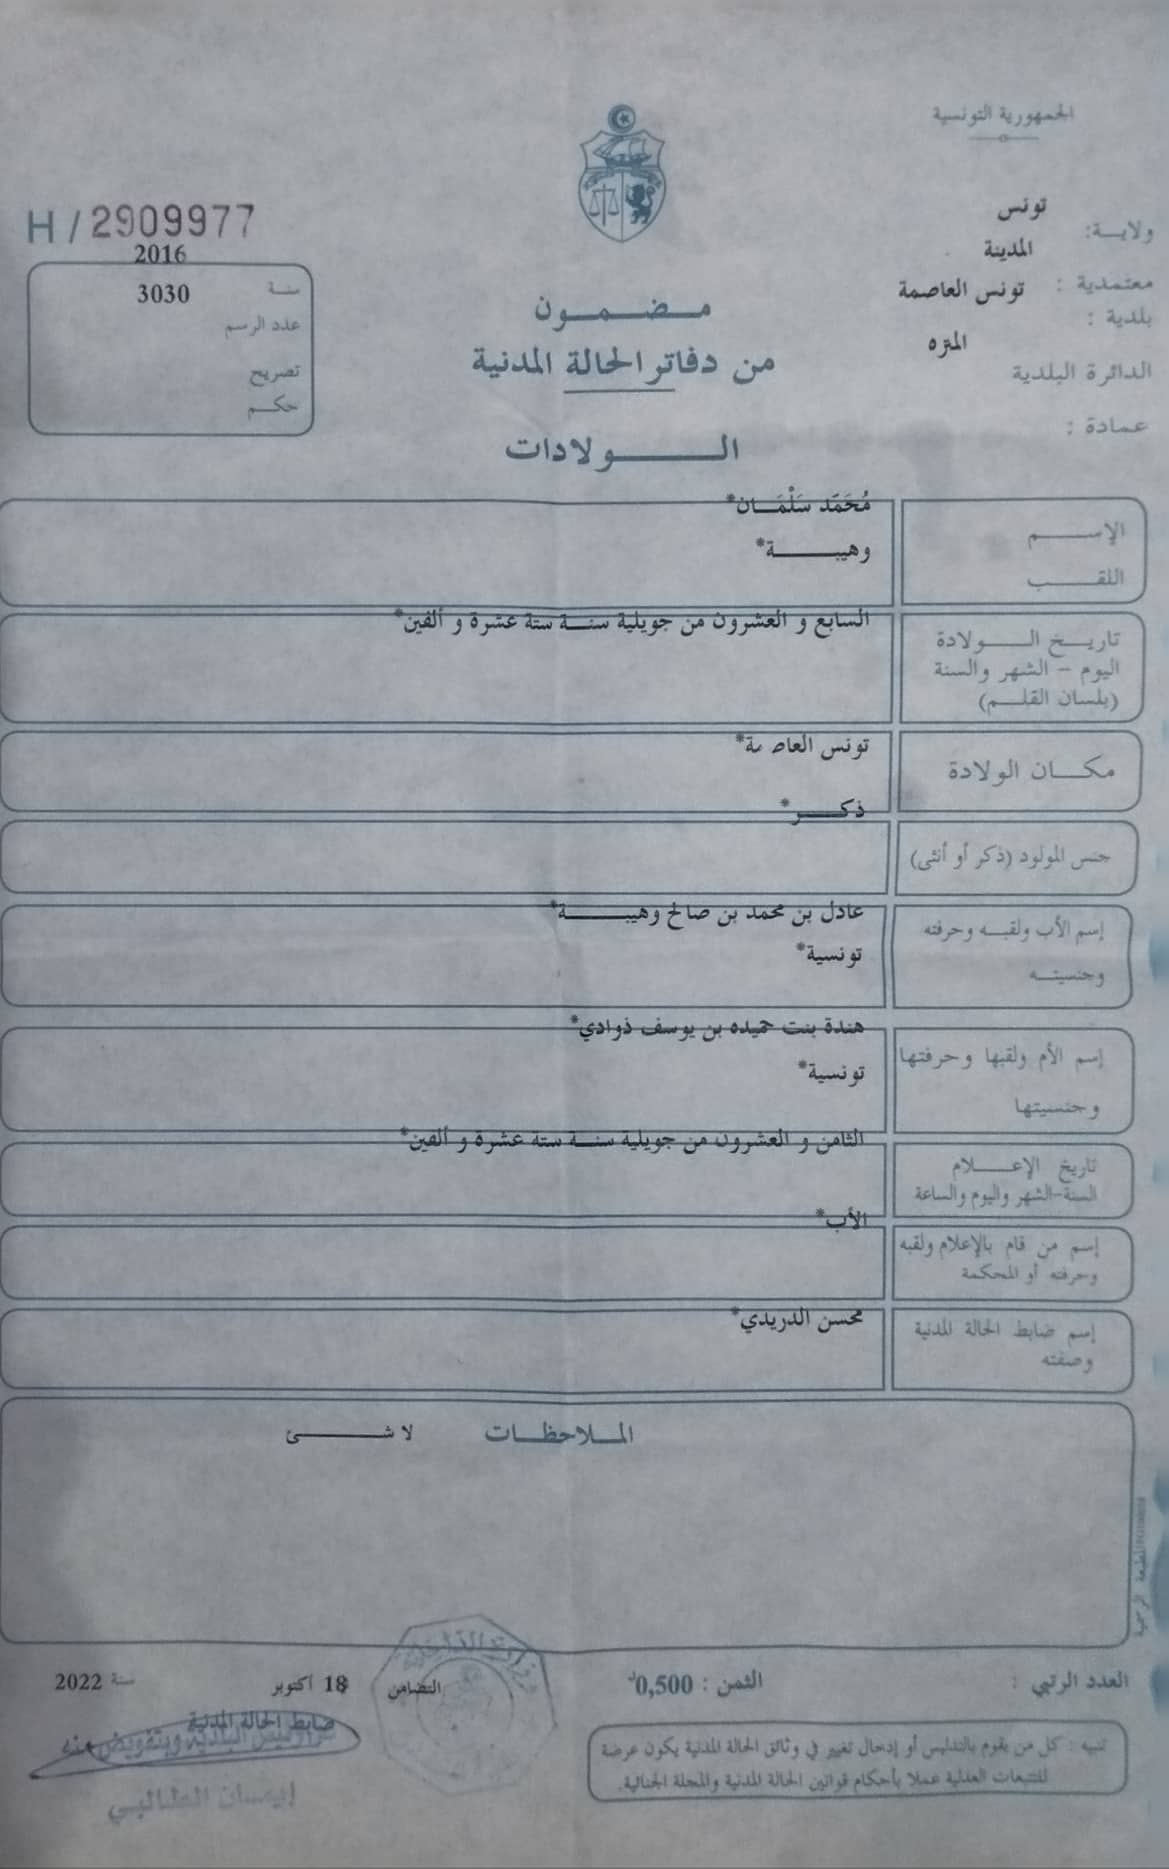 الجمهورية التونسية
ولايــة: تونس
معتمدية : المدينة
بلدية : تونس العاصمة
الدائرة البلدية المنزه
عمادة :
H / 2909977
سنة 2016
عدد الرسم 3030
تصريح
حكم
مــضــمــون
من دفاتر الحالة المدنية
الــــولادات
الإســــم مُحَمَّد سَلْمَــان*
اللقــب وهيبــــة*
تاريــخ الــولادة السابع و العشرون من جويلية سنــة ستة عشرة و ألفين*
اليوم – الشهر والسنة
(بلسان القلــم)
مكــان الولادة تونس العاصمة*
جنس المولود (ذكر أو أنثى) ذكــــر*
إسم الأب ولقبــه وحرفته عادل بن محمد بن صالح وهيبــــة*
وجنسيتــه تونسية*
إسم الأم ولقبها وحرفتها هندة بنت حميده بن يوسف ذوادي*
وجنسيتها تونسية*
تاريخ الإعــــلام الثامن و العشرون من جويلية سنــة ستة عشرة و ألفين*
السنة-الشهر واليوم والساعة
إسم من قام بالإعلام ولقبه الأب*
وحرفته أو المحكمة
إسم ضابط الحالة المدنية محسن الدريدي*
وصفته
المــلاحظــات لا شــــئ
المطبعة الرسمية
العدد الرتبي :
الثمن : 0,500د
التضامن 18 أكتوبر سنة 2022
وزارة الداخلية
ضابط الحالة المدنية
عن رئيس البلدية وبتفويض منه
إيمان الطالبي
تنبيه : كل من يقوم بالتدليس أو إدخال تغيير في وثائق الحالة المدنية يكون عرضة
للتتبعات العدلية عملا بأحكام قوانين الحالة المدنية والمجلة الجنائية.